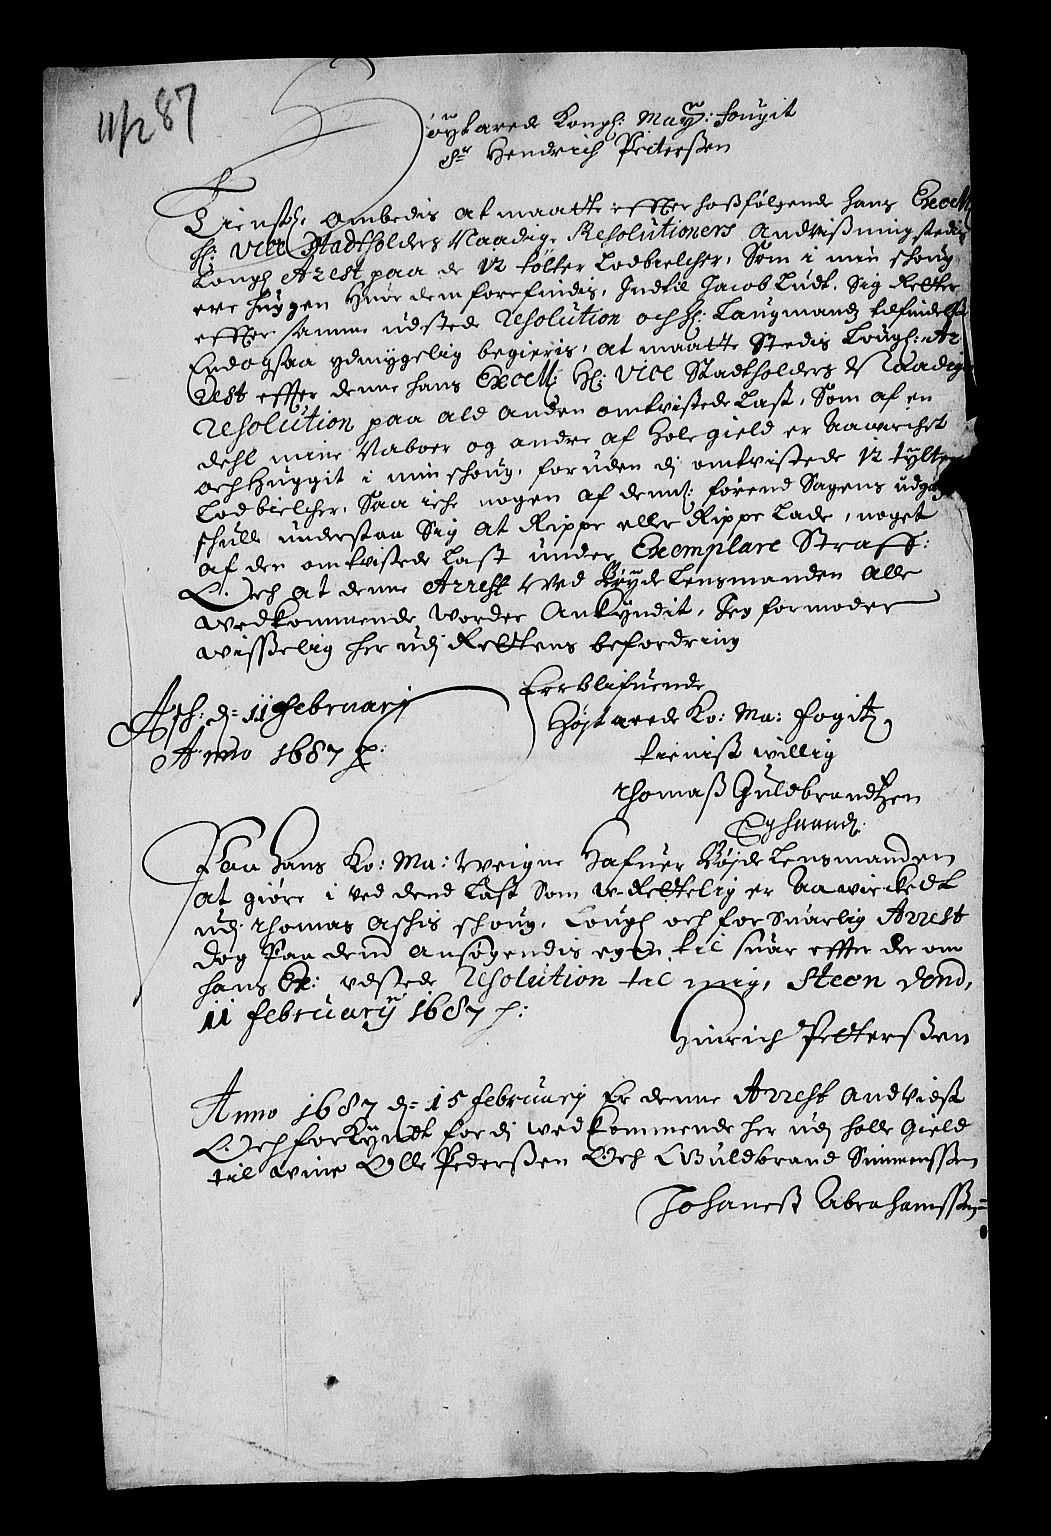 11/2 87
Höÿtarede Kongl: Maÿ: fougit
Sr Hendrich Peterßen
Tienstl. ombedis at maatte effter hoßfølgende hans Excell
H: Vice Stadtholders Naadige Resolutioners Andvißning stedis
Lougl Arest paa de 12 tölter Lodbielcher, Som i min skoug
ere huggen huor dem forefindis, Indtil Jacob Ludt. Sig Retter
effter samme udstede resolution och H: Laugmandz tilfindelse
Endogsaa ydmygelig begieris, at maatte Stedis Lougl: Ar
rest effter denne hans Excell: H: Vice Stadtholders Naadige
resolution paa ald anden omtvistede Last, Som af en
dehl mine Naboer og andre af Hole gield er Aawirchet
och Huggit i min skoug, foruden di omtvistede 12 tylter
Lod bielcher, Saa iche nogen af dennem førend Sagens udgang
skulle understaa Sig at Rippe eller Rippe Lade, noget
af den omtvistede Last under Exemplare Straff:
Och at denne Arrest Ved Bøyde Lensmanden Alle
wedkommende worder Ankÿndit, Jeg formoder
wisselig her udj Rettens befordring
Ash: d= 11 Februarj
Anno 1687 p:
Forblifuende
Höjtarede Ko: Ma: fogitz
tienist willig
Thomaß Guldbrandtzen
Egh haand.
Paa Hans Ko: Ma: Weigne Hafuer Böjde Lensmanden
at giöre i ved dend Last Som w-Rettelig er Aawirckedt
udj Thomas Aschis skoug, Lougl och forsuarlig Arrest
dog Paa dend Ansøgendis egen til suar effter de om
hans Ex: udstede resolution til mig, Steen dend,
11 februarÿ 1687 p:
Hinrich Petterßen
Anno 1687 d= 15 februarij Er denne Arrest Andvist
Och forkÿndt for dj wedkommende her udj holle Gield
til wine Olle Pederßen Och Guldbrand Simmenssen
Johanest Abrahamssen